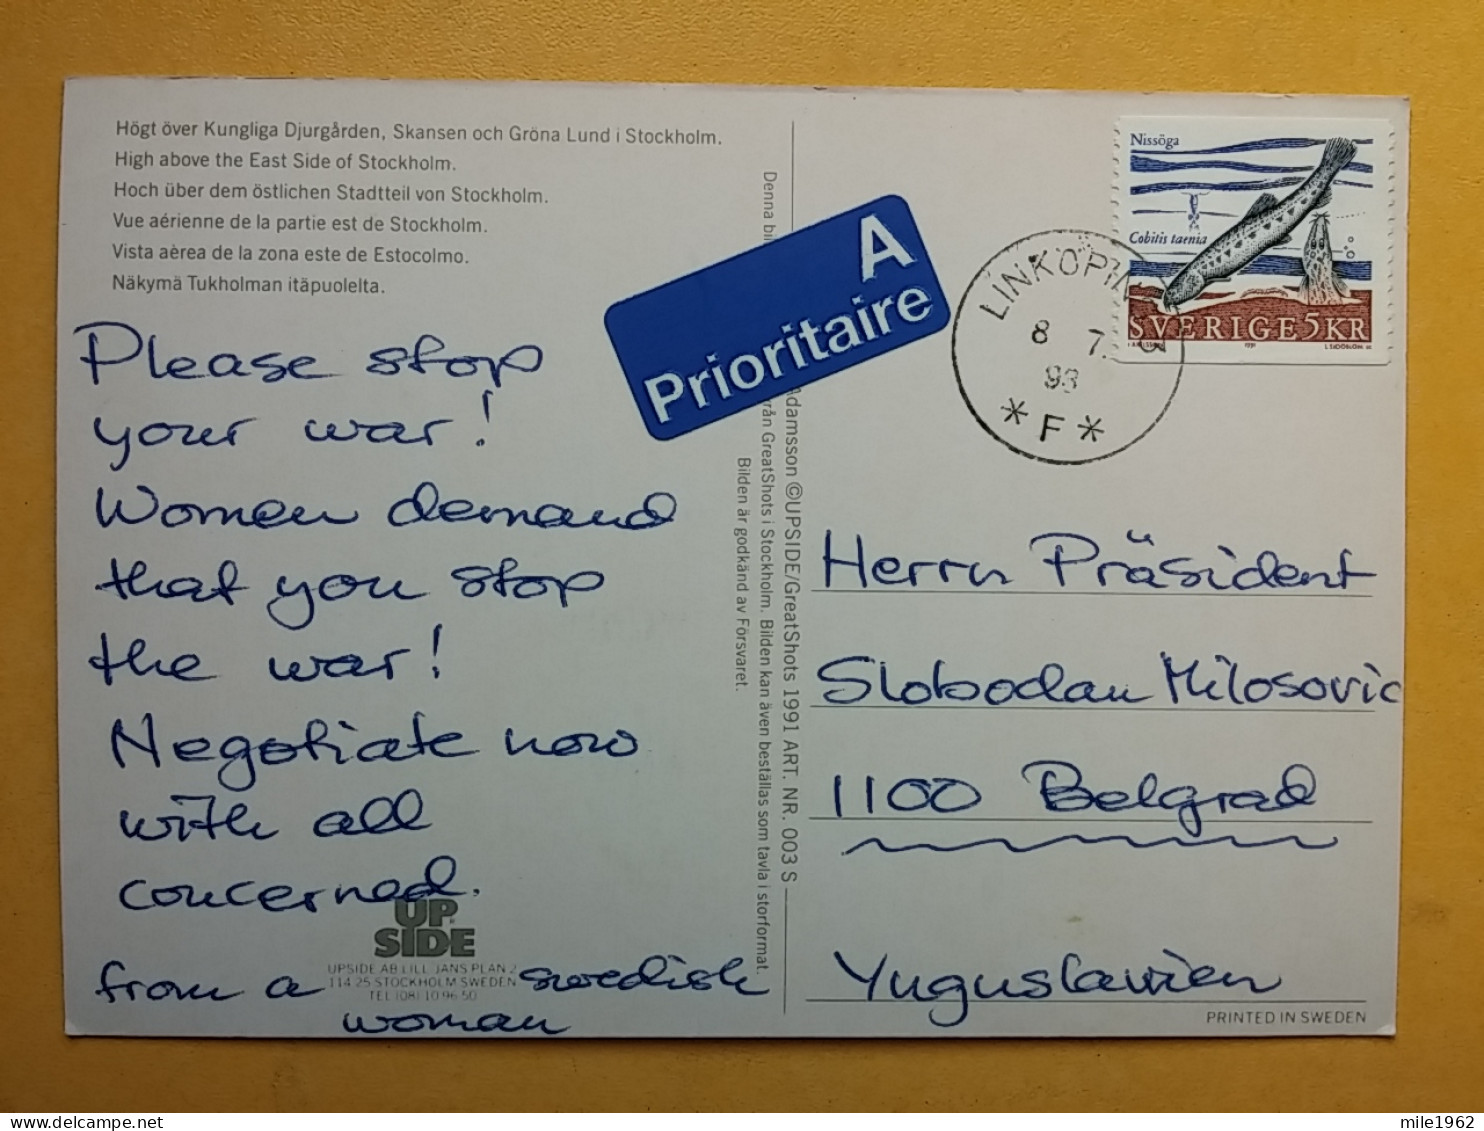 Högt över Kungliga Djurgården, Skansen och Gröna Lund i Stockholm.
High above the East Side of Stockholm.
Hoch über dem östlichen Stadtteil von Stockholm.
Vue aérienne de la partie est de Stockholm.
Vista aèrea de la zona este de Estocolmo.
Näkymä Tukholman itäpuolelta.
Please stop
your war!
Women demand
that you stop
the war!
Negotiate now
with all
concerned.
from a swedish
woman
UP
SIDE
UPSIDE AB LILL JANS PLAN 2
114 25 STOCKHOLM SWEDEN
TEL (08) 10 96 50
A
Prioritaire
damsson ©UPSIDE/GreatShots 1991 ART. NR. 003 S
Denna
från GreatShots i Stockholm. Bilden kan även beställas som tavla i storformat.
Bilden är godkänd av Försvaret.
LINKÖPING
8 7.
93
* F *
Nissöga
Cobitis taenia
SVERIGE 5KR
1991
Herrn Präsident
Slobodan Milosovic
1100 Belgrad
Yuguslawien
PRINTED IN SWEDEN
mile1962